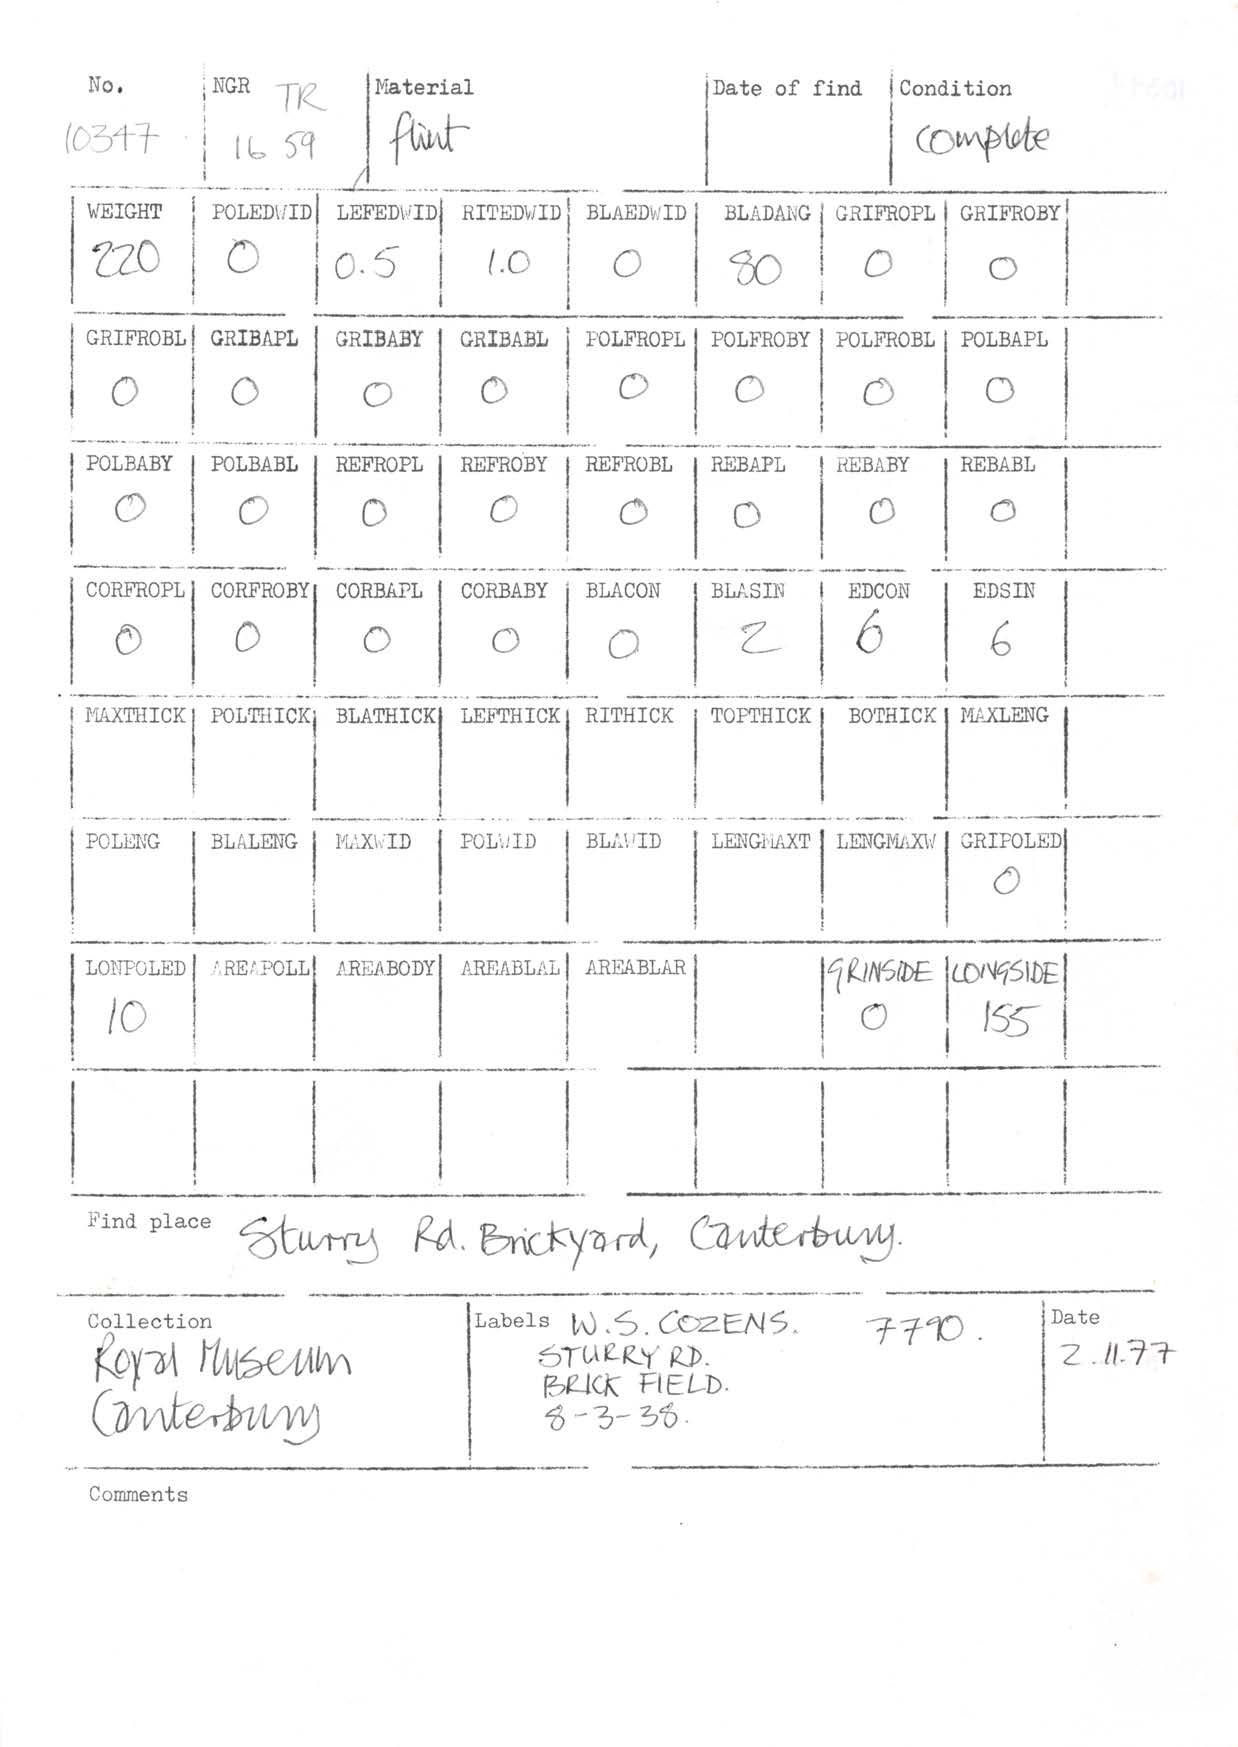 No. NGR TR Material Date of find Condition
10347 16 59 flint complete
WEIGHT POLEDWID LEFEDWID RITEDWID BLAEDWID BLADANG GRIFROPL GRIFROBY
220 0 0.5 1.0 0 80 0 0
GRIFROBL GRIBAPL GRIBABY GRIBABL POLFROPL POLFROBY POLFROBL POLBAPL
0 0 0 0 0 0 0 0
POLBABY POLBABL REFROPL REFROBY REFROBL REBAPL REBABY REBABL
0 0 0 0 0 0 0 0
CORFROPL CORFROBY CORBAPL CORBABY BLACON BLASIN EDCON EDSIN
0 0 0 0 0 2 6 6
MAXTHICK POLTHICK BLATHICK LEFTHICK RITHICK TOPTHICK BOTHICK MAXLENG
POLENG BLALENG MAXWID POLWID BLAWID LENGMAXT LENGMAXW GRIPOLED
0
LONPOLED AREAPOLL AREABODY AREABLAL AREABLAR GRINSIDE LONGSIDE
10 0 155
Find place Sturry Rd. Brickyard, Canterbury.
Collection Labels W.S. COZENS. 7790. Date
Royal Museum STURRY RD. 2.11.77
Canterbury BRICK FIELD.
8-3-38.
Comments